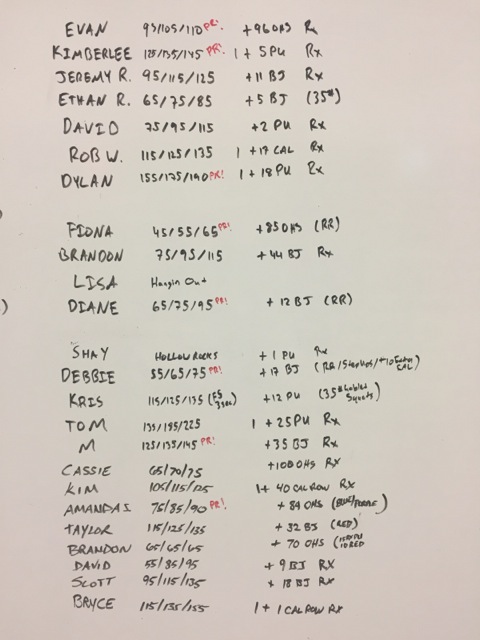 EVAN 95/105/110 PR! +96 OHS Rx
KIMBERLEE 125/135/145 PR! 1 + 5 PU Rx
JEREMY R. 95/115/125 +11 BJ Rx
ETHAN R. 65/75/85 +5 BJ (35#)
DAVID 75/95/115 +2 PU Rx
ROB W. 115/125/135 1 +17 CAL Rx
DYLAN 155/175/190 PR! 1 +18 PU Rx
FIONA 45/55/65 PR! +85 OHS (RR)
BRANDON 75/95/115 +44 BJ Rx
LISA Hangin Out
DIANE 65/75/95 PR! +12 BJ (RR)
)
SHAY HOLLOW ROCKS +1 PU Rx
DEBBIE 55/65/75 PR! +17 BJ (RR/StepUps/+10 CAL)
KRIS 115/125/135 (FS +12 PU (35# Goblet Squats)
TOM 135/185/225 1 +25 PU Rx
M 125/135/145 PR! +35 BJ Rx
CASSIE 65/70/75 +100 OHS Rx
KIM 105/115/125 1+ 40 CAL ROW Rx
AMANDA S 75/85/90 PR! +84 OHS (BLUE/PURPLE)
TAYLOR 115/125/135 +32 BJ (RED)
BRANDON 65/65/65 +70 OHS RED
DAVID 55/85/95 +9 BJ Rx
SCOTT 95/115/135 +18 BJ Rx
BRYCE 115/135/155 1+ 1 CAL ROW Rx